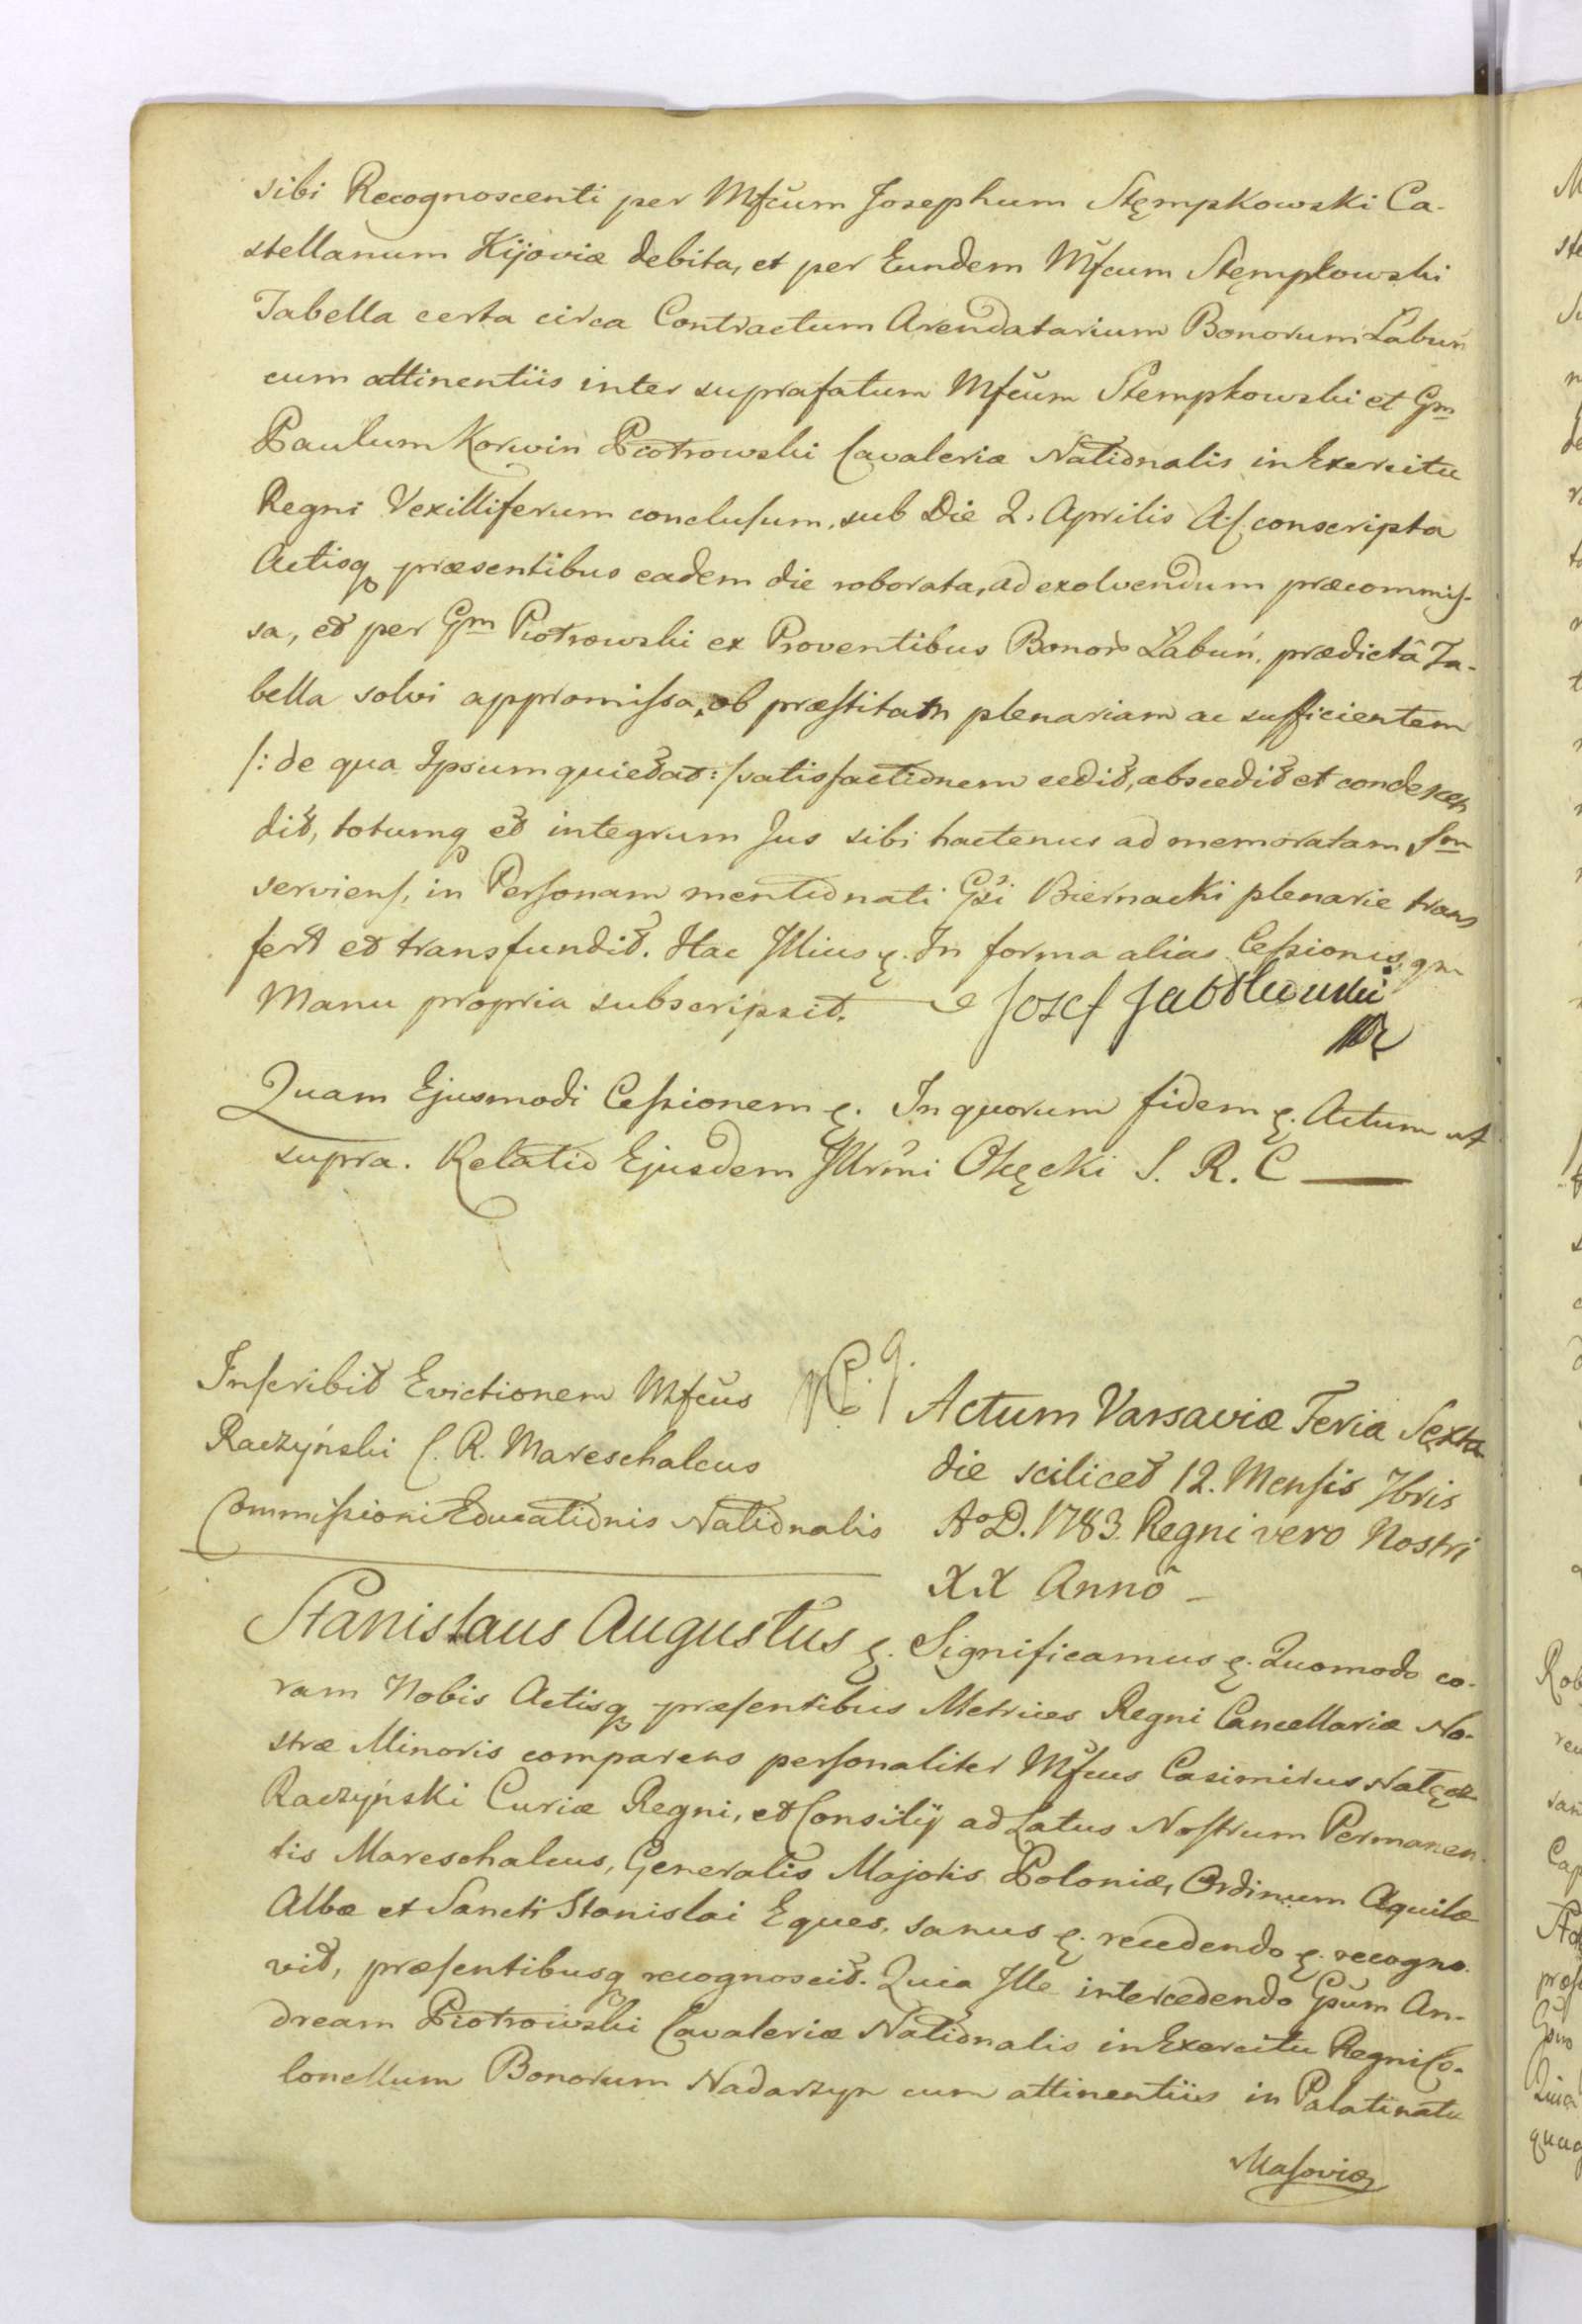 sibi Recognoscenti per Mfcum Josephum Stępkowski Ca-
stellanum Kijoviæ debita, et per Eundem Mfcum Stępkowski
Tabella certa circa Contractum Arendatarium Bonorum Łabuń
cum attinentiis inter suprafatum Mfcum Stempkowski et Gm
Paulum Korwin Piotrowski Cavaleriæ Nationalis in Exercitu
Regni Vexilliferum conclusum, sub Die 2. Aprilis A. c. conscripta
Actisq præsentibus eadem die roborata, ad exolvendum præcommis-
sa, et per Gm Piotrowski ex Proventibus Bonor Łabuń, prædictâ Ta-
bella solvi appromissa, ob præstitam plenariam ac sufficientem
/: de qua Ipsum quietat :/ satisfactionem cedit, abscedit et condescen
dit, totumq et integrum Jus sibi hactenus ad memoratam Sm
serviens, in Personam mentionati Gsi Biernacki plenarie trans
fert et transfundit. Hac Illius &. In forma alias Cessionis, qm
Manu propria subscripsit. Josef Jabłkowski
Quam Ejusmodi Cessionem &. In quorum fidem &. Actum ut
supra. Relatio Ejusdem Illrmi Okęcki S. R. C
Inscribit Evictionem Mfcus
Raczyński C. R. Mareschalcus
Commissioni Educationis Nationalis
Actum Varsaviæ Feria Sexta
die scilicet 12. Mensis 7bris
Ao D. 1783 Regni vero Nostri
XX Annô
Stanislaus Augustus &. Significamus &. Quomodo co-
ram Nobis Actisq præsentibus Metrices Regni Cancellariæ No-
stræ Minoris comparens personaliter Mfcus Casimirus Nałęcz
Raczyński Curiæ Regni, et Consilij ad Latus Nostrum Permanen-
tis Mareschalcus, Generalis Majoris Poloniæ, Ordinum Aquilæ
Albæ et Sancti Stanislai Eques, sanus &. recedendo &. recogno-
vit, præsentibusq recognoscit. Quia Ille intercedendo Gsum An-
dream Piotrowski Cavaleriæ Nationalis in Exercitu Regni Co-
lonellum Bonorum Nadarzyn cum attinentiis in Palatinatu
Masoviæ